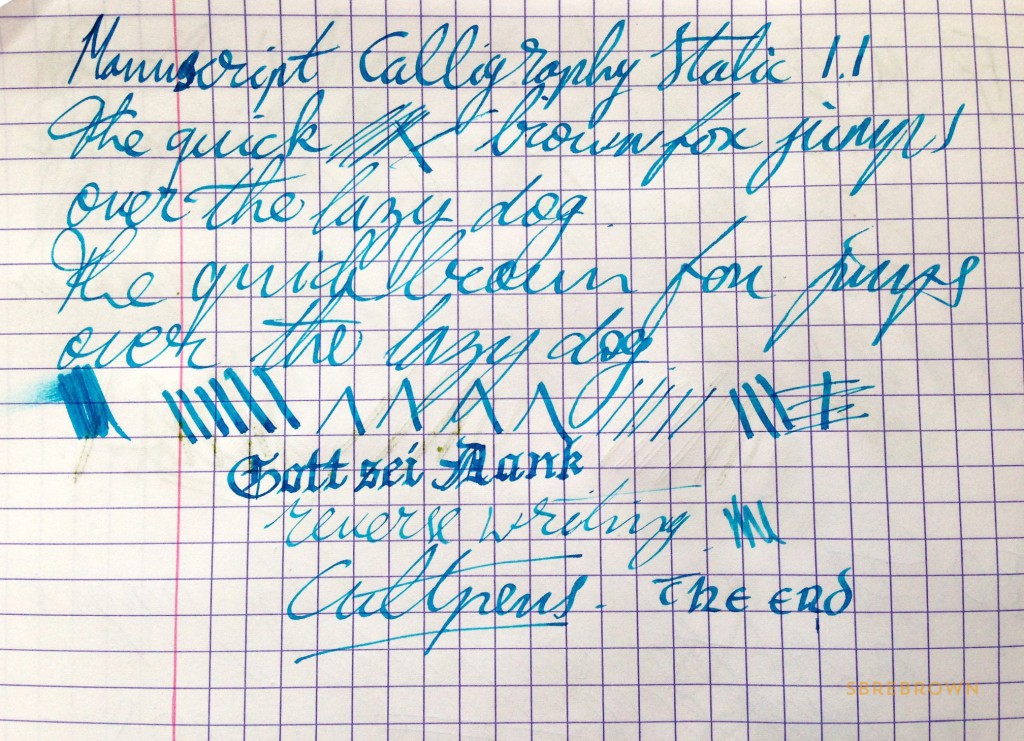 Manuscript Calligraphy Italic 1.1
The quick brown fox jumps
over the lazy dog.
The quick brown fox jumps
over the lazy dog
Gott sei Dank
reverse writing
Cultpens. THE END
SBREBROWN